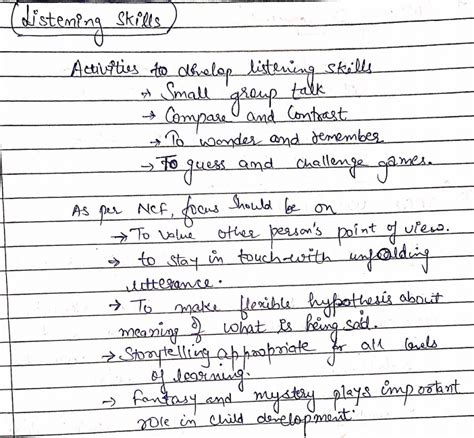 Listening Skills
Activities to develop listening skills
→ Small group talk
→ Compare and Contrast
→ To wonder and remember
→ To guess and challenge games.
As per Ncf, focus should be on
→ To value other person's point of view.
→ to stay in touch with unfolding
utterance.
→ To make flexible hypothesis about
meaning of what is being said.
→ Storytelling appropriate for all levels
of learning.
→ fantasy and mystery plays important
role in child development.